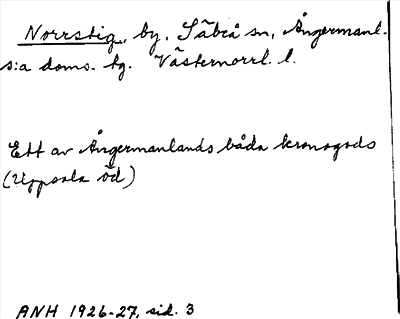 Norrstig, by. Säbrå sn, Ångermanl.
s:a doms. tg. Västernorrl. l.
Ett av Ångermanlands båda kronogods
(Uppsala öd)
ANH 1926-27, sid. 3